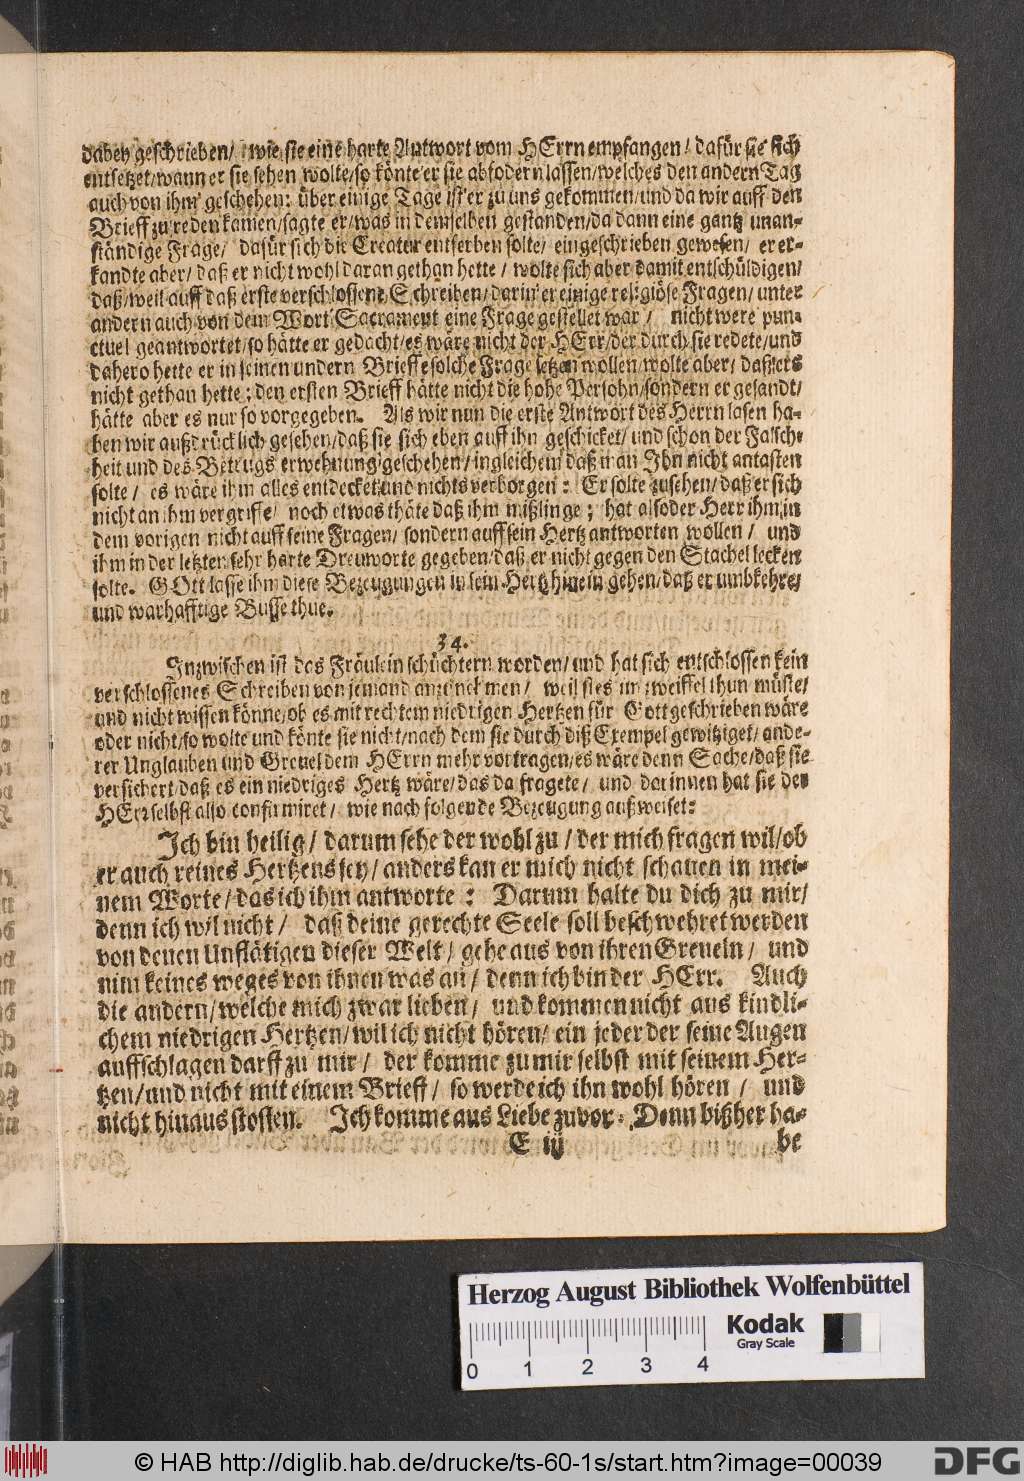 dabey geschrieben/ wie sie eine harte Antwort vom HErrn empfangen/ dafür sie sich
entsetzet/wann er sie sehen wolte/so könte er sie abfodern lassen/welches den andern Tag
auch von ihm geschehen: über einige Tage ist er zu uns gekommen/und da wir auff den
Brieff zu reden kamen/sagte er/was in demselben gestanden/da dann eine gantz unan-
ständige Frage/ dafür sich die Creatur entferben solte/ eingeschrieben gewesen/ er er-
kandte aber/ daß er nicht wohl daran gethan hette/ wolte sich aber damit entschüldigen/
daß/weil auff daß erste verschlossene Schreiben/darin er einige religiöse Fragen/unter
andern auch von dem Wort Sacrament eine Frage gestellet war/ nicht were pun-
ctuel geantwortet/so hätte er gedacht/es wäre nicht der HErr/der durch sie redete/und
dahero hette er in seinen andern Brieffe solche Frage setzen wollen/wolte aber/ daß ers
nicht gethan hette; den ersten Brieff hätte nicht die hohe Persohn/sondern er gesandt/
hätte aber es nur so vorgegeben. Als wir nun die erste Antwort des Herrn lasen ha-
ben wir außdrücklich gesehen/daß sie sich eben auff ihn geschicket/und schon der Falsch-
heit und des Betrugs erwehnung geschehen/ingleichem daß man Ihn nicht antasten
solte/ es wäre ihm alles entdecket und nichts verborgen: Er solte zusehen/daß er sich
nicht an ihm vergriffe/ noch etwas thäte daß ihm mißlinge; hat also der Herr ihm in
dem vorigen nicht auff seine Fragen/sondern auff sein Hertz antworten wollen/ und
ihm in der letzten sehr harte Dreuworte gegeben/daß er nicht gegen den Stachel lecken
solte. GOtt lasse ihm diese Bezeugungen in sein Hertz hinein gehen/daß er umbkehre/
und warhafftige Busse thue.
34.
Inzwischen ist das Fräulein schüchtern worden/und hat sich entschlossen kein
verschlossenes Schreiben von jemand anzunehmen/ weil sies im zweiffel thun müste/
und nicht wissen könne/ob es mit rechtem niedrigen Hertzen für Gott geschrieben wäre
oder nicht/so wolte und könte sie nicht/nach dem sie durch diß Exempel gewitziget/ande-
rer Unglauben und Greuel dem HErrn mehr vortragen/es wäre denn Sache/daß sie
versichert/daß es ein niedriges Hertz wäre/das da fragete/ und darinnen hat sie der
HErr selbst also confirmiret/ wie nachfolgende Bezeugung außweiset:
Ich bin heilig/ darum sehe der wohl zu/der mich fragen wil/ob
er auch reines Hertzens sey/anders kan er mich nicht schauen in mei-
nem Worte/das ich ihm antworte: Darum halte du dich zu mir/
denn ich wil nicht/ daß deine gerechte Seele soll beschwehret werden
von denen Unflätigen dieser Welt/ gehe aus von ihren Greueln/ und
nim keines weges von ihnen was an/ denn ich bin der HErr. Auch
die andern/welche mich zwar lieben/ und kommen nicht aus kindli-
chem niedrigen Hertzen/wil ich nicht hören/ein jeder der seine Augen
auffschlagen darff zu mir/ der komme zu mir selbst mit seinem Her-
tzen/und nicht mit einem Brieff/ so werde ich ihn wohl hören/ und
nicht hinaus stossen. Ich komme aus Liebe zuvor. Denn bißher ha-
E iij be
Herzog August Bibliothek Wolfenbüttel
Kodak
Gray Scale
0 1 2 3 4
© HAB http://diglib.hab.de/drucke/ts-60-1s/start.htm?image=00039
DFG